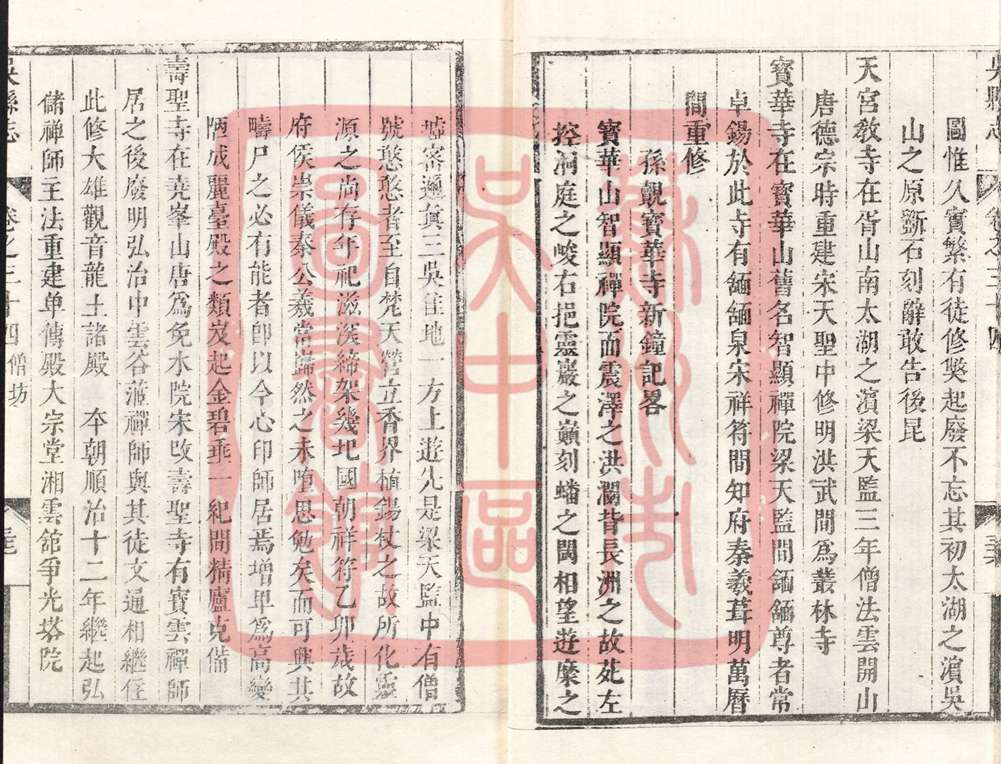 圖惟久賓繁有徒修獘起廢不忘其初太湖之濵吳
山之原斵石刻辭敢告後昆
天宮敎寺在胥山南太湖之濵梁天監三年僧法雲開山
唐德宗時重建宋天聖中修明洪武間爲叢林寺
寳華寺在寳華山舊名智顯禪院梁天監間𢡟𢡟尊者常
卓錫於此寺有𢡟𢡟泉宋祥符間知府秦羲葺明萬曆
間重修
孫覿寳華寺新鐘記畧
寳華山智顯禪院而震澤之洪瀾背長洲之故苑左
控洞庭之峻右挹靈巖之巔刻蟠之閎相望遊麋之
墟密邇眞三吳隹地一方上遊先是梁天監中有僧
號憨憨者至自梵天營立香界植錫杖之故所化靈
源之尚存年祀滋深締架幾圯國朝祥符乙卯歳故
府侯崇儀秦公羲常巋然之未墮思勉矣而可興其
疇尸之必有能者卽以今心印師居焉增卑爲高變
陋成麗臺殿之類岌起金碧乖一紀間精廬克僃
壽聖寺在堯峯山唐爲免水院宋改壽聖寺有寳雲禪師
居之後廢明弘治中雲谷禪師與其徒文通相繼住
此修大雄觀音龍土諸殿　夲朝順治十二年繼起弘
儲禪師王法重建单傳殿大宗堂湘雲舘爭光塔院
吳縣志　卷之三十四 僧坊